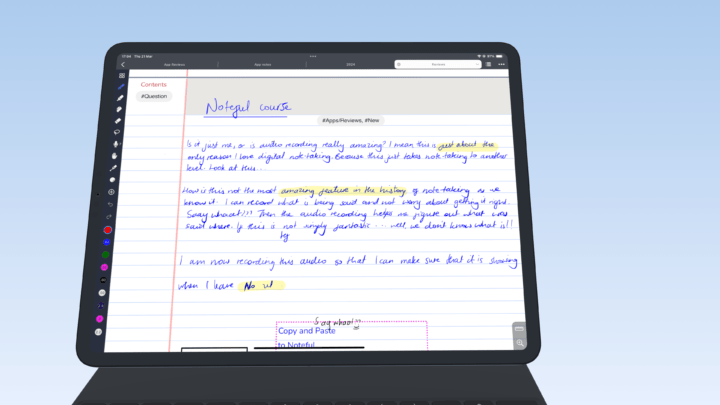 17:06 Thu 21 Mar
App Reviews
App notes
2024
Reviews
Contents
#Question
Noteful course
#Apps/Reviews, #New
Is it just me, or is audio recording really amazing? I mean this is just about the
only reason I love digital note-taking. Because this just takes note-taking to another
level. Look at this...
How is this not the most amazing feature in the history of note-taking as we
know it. I can record what is being said and not worry about getting it right.
Saay whaaat!!! Then the audio recording helps me figure out what was
said where. If this is not simply fantastic ... well, we don't know what is!!
by
I am now recording this audio so that I can make sure that it is showing
when I have No
Say whaat??
Copy and Paste
to Noteful